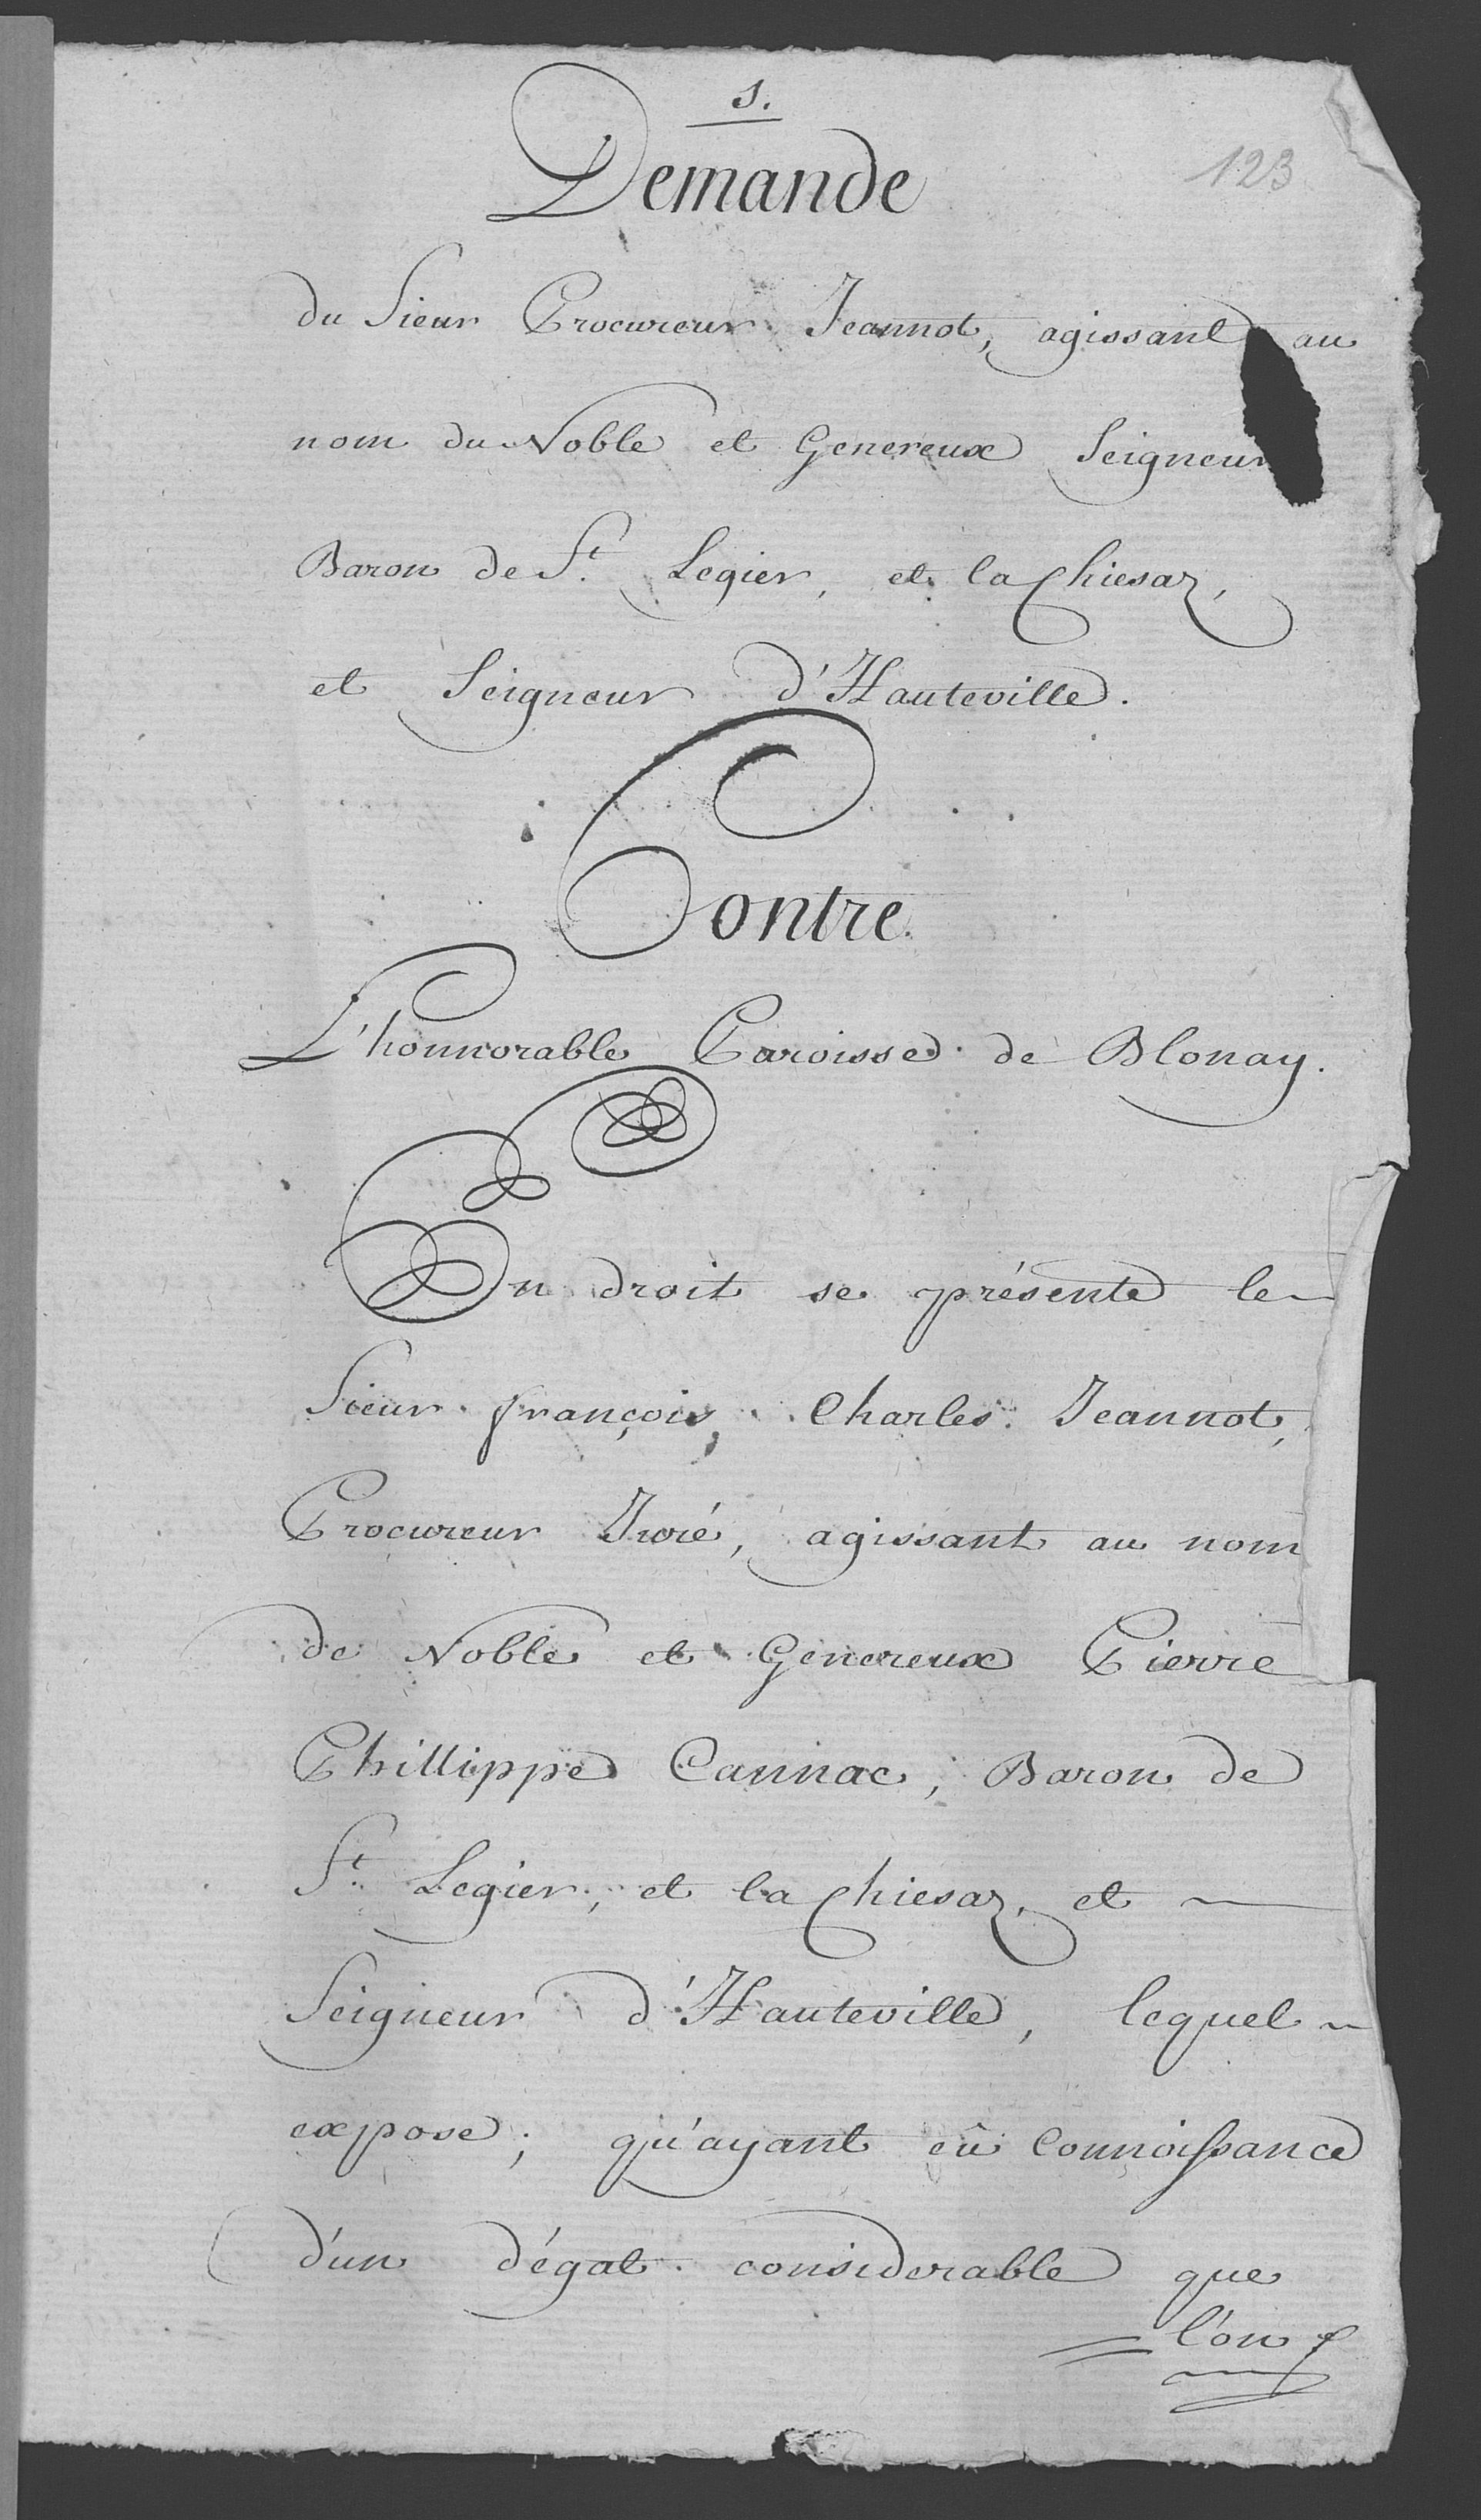 1.
123
Demande
du Sieur Procureur Jeannot, agissant au
nom du Noble et Genereux Seigneur
Baron de St. Legier, et la Chiesaz,
et Seigneur d'Hauteville.
Contre
L'honnorable Paroisse de Blonay.
En droit se présente le
Sieur françois, Charles Jeannot,
Procureur Juré, agissant au nom
de Noble et Genereux Pierre
Phillippe Cannac, Baron de
St. Legier, et la Chiesaz, et
Seigneur d'Hauteville, lequel
expose; qu'ayant eû Connoissance
d'un dégat considerable que
l'on